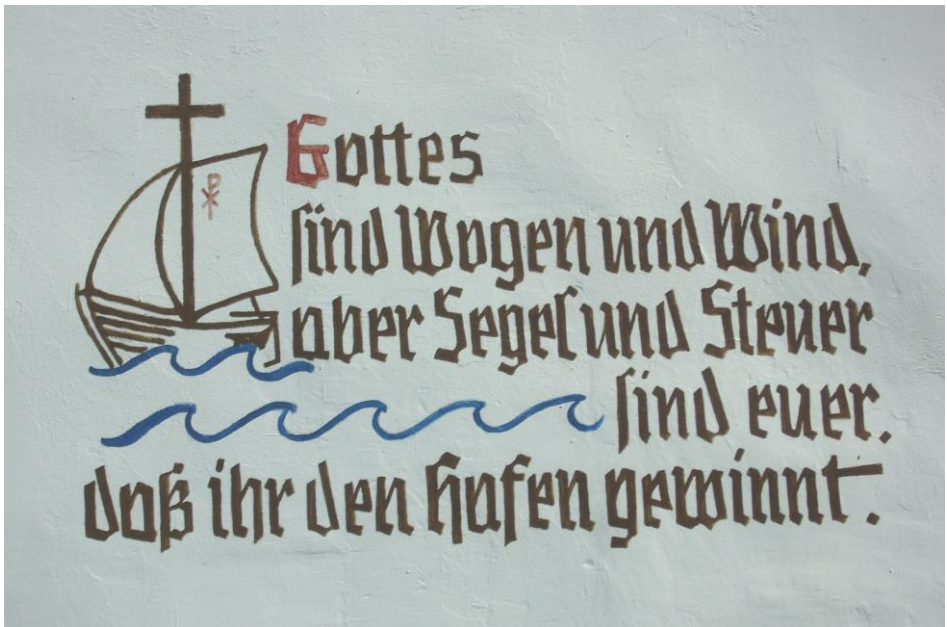 Gottes
sind Wogen und Wind,
aber Segel und Steuer
sind euer.
daß ihr den Hafen gewinnt.